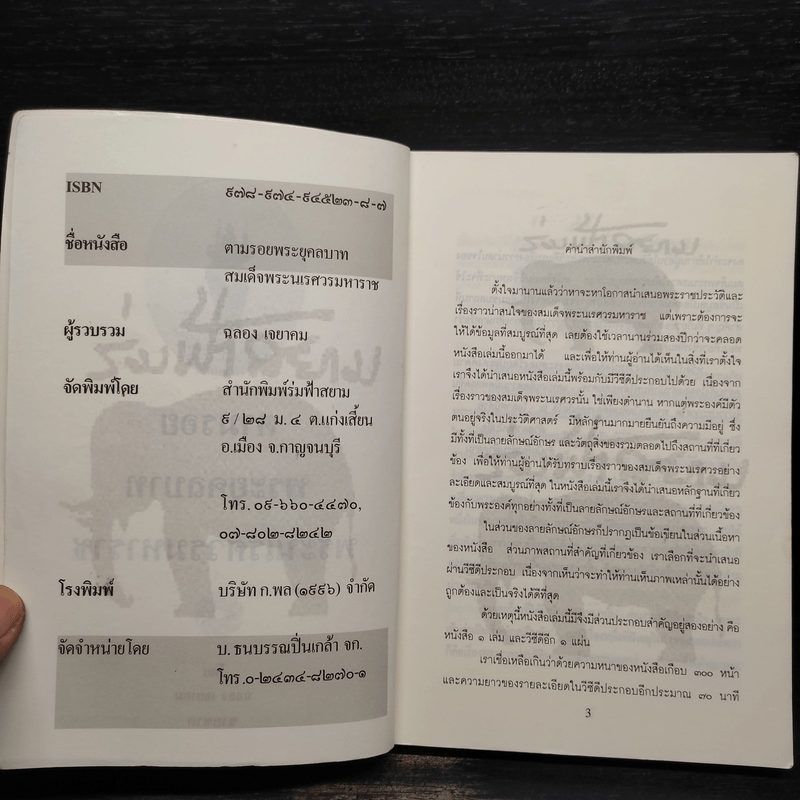 ISBN ๙๗๘-๙๗๔-๙๔๕๒๓-๘-๗
ชื่อหนังสือ ตามรอยพระยุคลบาท
สมเด็จพระนเรศวรมหาราช
ผู้รวบรวม ฉลอง เจยาคม
จัดพิมพ์โดย สำนักพิมพ์ร่มฟ้าสยาม
๙/๒๘ ม.๔ ต.แก่งเสี้ยน
อ.เมือง จ.กาญจนบุรี
โทร.๐๙-๖๖๐-๔๔๗๐,
๐๗-๘๐๒-๘๒๔๒
โรงพิมพ์ บริษัท ก.พล (๑๙๙๖) จำกัด
จัดจำหน่ายโดย บ. ธนบรรณปิ่นเกล้า จก.
โทร.๐-๒๔๓๔-๘๒๗๐-๑
คำนำสำนักพิมพ์
ตั้งใจมานานแล้วว่าหาจะหาโอกาสนำเสนอพระราชประวัติและ
เรื่องราวน่าสนใจของสมเด็จพระนเรศวรมหาราช แต่เพราะต้องการจะ
ให้ได้ข้อมูลที่สมบูรณ์ที่สุด เลยต้องใช้เวลานานร่วมสองปีกว่าจะคลอด
หนังสือเล่มนี้ออกมาได้ และเพื่อให้ท่านผู้อ่านได้เห็นในสิ่งที่เราตั้งใจ
เราจึงได้นำเสนอหนังสือเล่มนี้พร้อมกับมีวีซีดีประกอบไปด้วย เนื่องจาก
เรื่องราวของสมเด็จพระนเรศวรนั้น ใช่เพียงตำนาน หากแต่พระองค์มีตัว
ตนอยู่จริงในประวัติศาสตร์ มีหลักฐานมากมายยืนยันถึงความมีอยู่ ซึ่ง
มีทั้งที่เป็นลายลักษณ์อักษร และวัตถุสิ่งของรวมตลอดไปถึงสถานที่ที่เกี่ยว
ข้อง เพื่อให้ท่านผู้อ่านได้รับทราบเรื่องราวของสมเด็จพระนเรศวรอย่าง
ละเอียดและสมบูรณ์ที่สุด ในหนังสือเล่มนี้เราจึงได้นำเสนอหลักฐานที่เกี่ยว
ข้องกับพระองค์ทุกอย่างทั้งที่เป็นลายลักษณ์อักษรและสถานที่ที่เกี่ยวข้อง
ในส่วนของลายลักษณ์อักษรก็ปรากฏเป็นข้อเขียนในส่วนเนื้อหา
ของหนังสือ ส่วนภาพสถานที่สำคัญที่เกี่ยวข้อง เราเลือกที่จะนำเสนอ
ผ่านวีซีดีประกอบ เนื่องจากเห็นว่าจะทำให้ท่านเห็นภาพเหล่านั้นได้อย่าง
ถูกต้องและเป็นจริงได้ดีที่สุด
ด้วยเหตุนี้หนังสือเล่มนี้มีจึงมีส่วนประกอบสำคัญอยู่สองอย่าง คือ
หนังสือ ๑ เล่ม และวีซีดีอีก ๑ แผ่น
เราเชื่อเหลือเกินว่าด้วยความหนาของหนังสือเกือบ ๓๐๐ หน้า
และความยาวของรายละเอียดในวีซีดีประกอบอีกประมาณ ๓๐ นาที
3